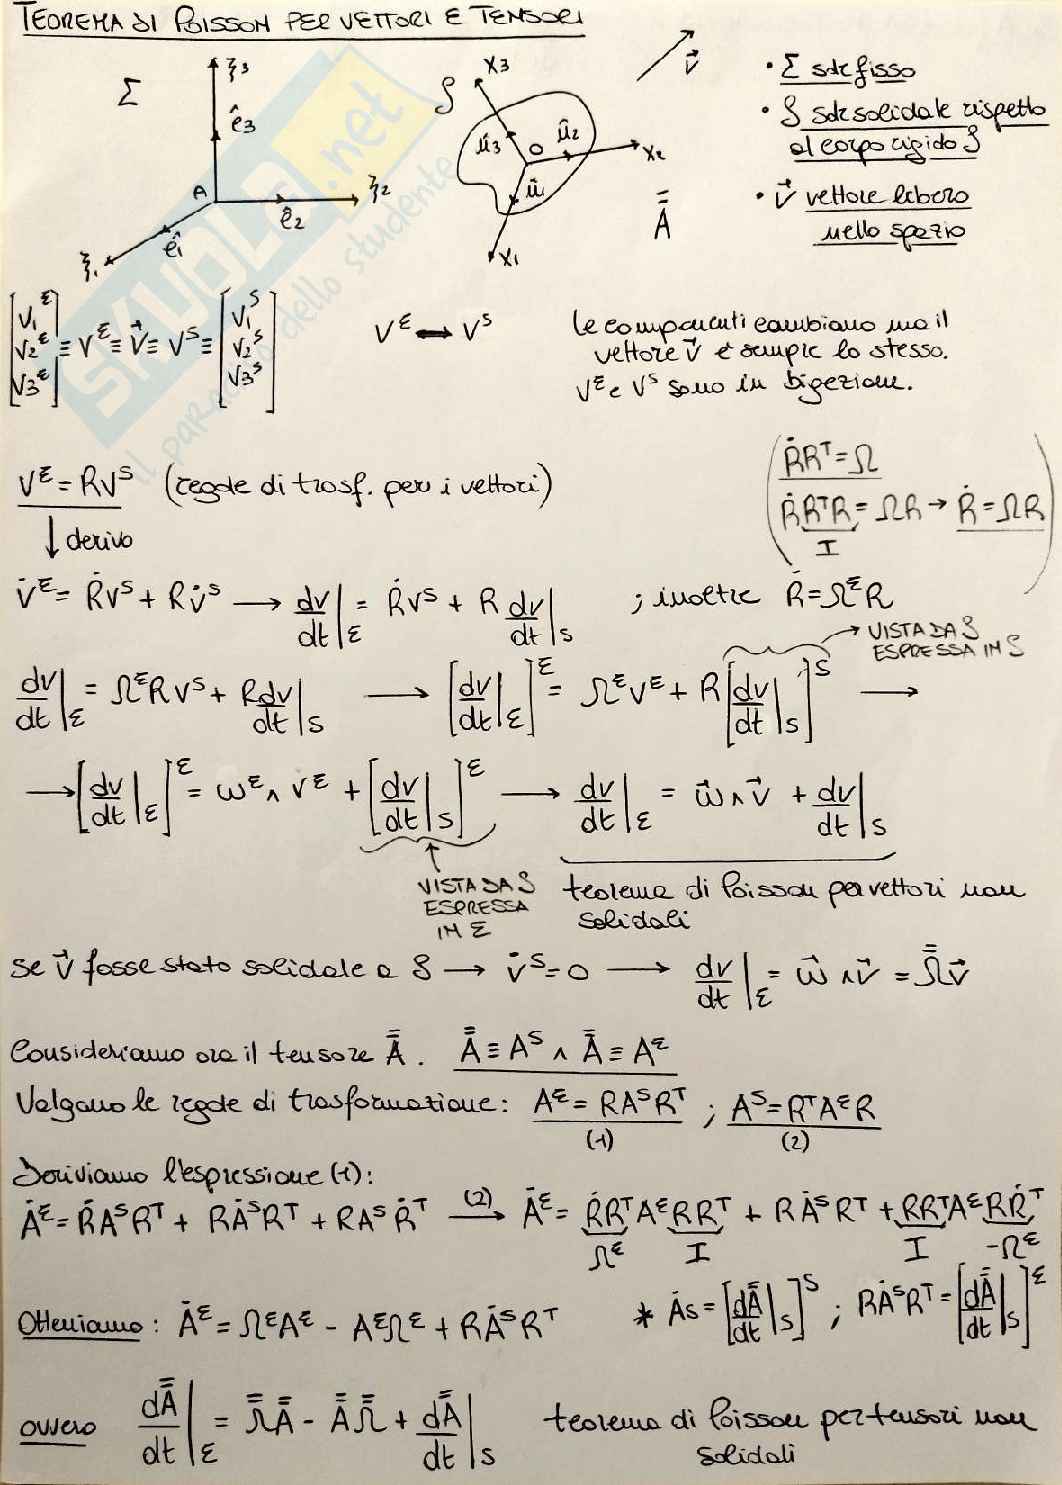 TEOREMA DI POISSON PER VETTORI E TENSORI
Σ ξ3 ê3 A ê2 ξ2 ê1 ξ1
S x3 û3 O û2 x2 û x1
v⃗
Ā̄
• Σ sdr fisso
• S sdr solidale rispetto
al corpo rigido S
• v⃗ vettore libero
nello spazio
[V1^Σ V2^Σ V3^Σ] ≡ V^Σ ≡ V⃗ ≡ V^S ≡ [V1^S V2^S V3^S]
V^Σ ⟷ V^S
le componenti cambiano ma il
vettore v⃗ è sempre lo stesso.
V^Σ e V^S sono in bigezione.
V^Σ = RV^S (regole di trasf. per i vettori)
(ṘR^T = Ω
ṘR^TR = ΩR → Ṙ = ΩR
I)
↓ derivo
V̇^Σ = ṘV^S + RV̇^S → dv/dt|Σ = ṘV^S + R dv/dt|S ; inoltre Ṙ = Ω^ΣR
→ VISTA DA S
ESPRESSA IN S
dv/dt|Σ = Ω^ΣRV^S + R dv/dt|S → [dv/dt|Σ]^Σ = Ω^ΣV^Σ + R[dv/dt|S]^S →
→ [dv/dt|Σ]^Σ = ω^Σ ∧ v^Σ + [dv/dt|S]^Σ → dv/dt|Σ = ω⃗ ∧ v⃗ + dv/dt|S
VISTA DA S
ESPRESSA
IN Σ
teorema di Poisson per vettori non
solidali
Se v⃗ fosse stato solidale a S → v̇^S = 0 → dv/dt|Σ = ω⃗ ∧ v⃗ = Ω̄̄v⃗
Consideriamo ora il tensore Ā̄. Ā̄ ≡ A^S ∧ Ā̄ ≡ A^Σ
Valgono le regole di trasformazione: A^Σ = RA^SR^T ; A^S = R^TA^ΣR
(1) (2)
Deriviamo l'espressione (1):
Ȧ^Σ = ṘA^SR^T + RȦ^SR^T + RA^SṘ^T —(2)→ Ȧ^Σ = ṘR^TA^ΣRR^T + RȦ^SR^T + RR^TA^ΣRṘ^T
Ω^Σ I I -Ω^Σ
Otteniamo: Ȧ^Σ = Ω^ΣA^Σ - A^ΣΩ^Σ + RȦ^SR^T * Ȧs = [dĀ̄/dt|S]^S ; RȦ^SR^T = [dĀ̄/dt|S]^Σ
ovvero dĀ̄/dt|Σ = Ω̄̄Ā̄ - Ā̄Ω̄̄ + dĀ̄/dt|S
teorema di Poisson per tensori non
solidali
SKUOLA.net
il paradiso dello studente